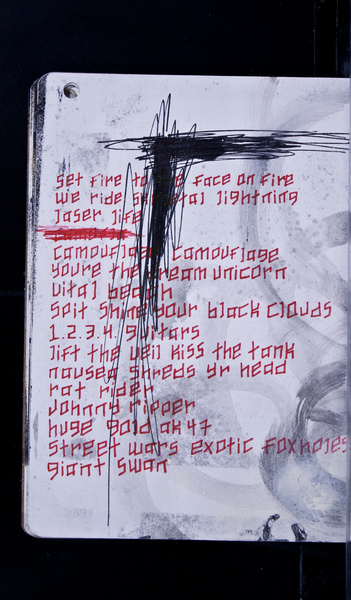 set fire to the face on fire
we ride skeletal lightning
laser life
camouflage camouflage
youre the dream unicorn
vital beach
spit shine your black clouds
1.2.3.4. guitars
lift the veil kiss the tank
nausea shreds yr head
rat rider
johnny ripper
huge gold ak 47
street wars exotic foxholes
giant swan